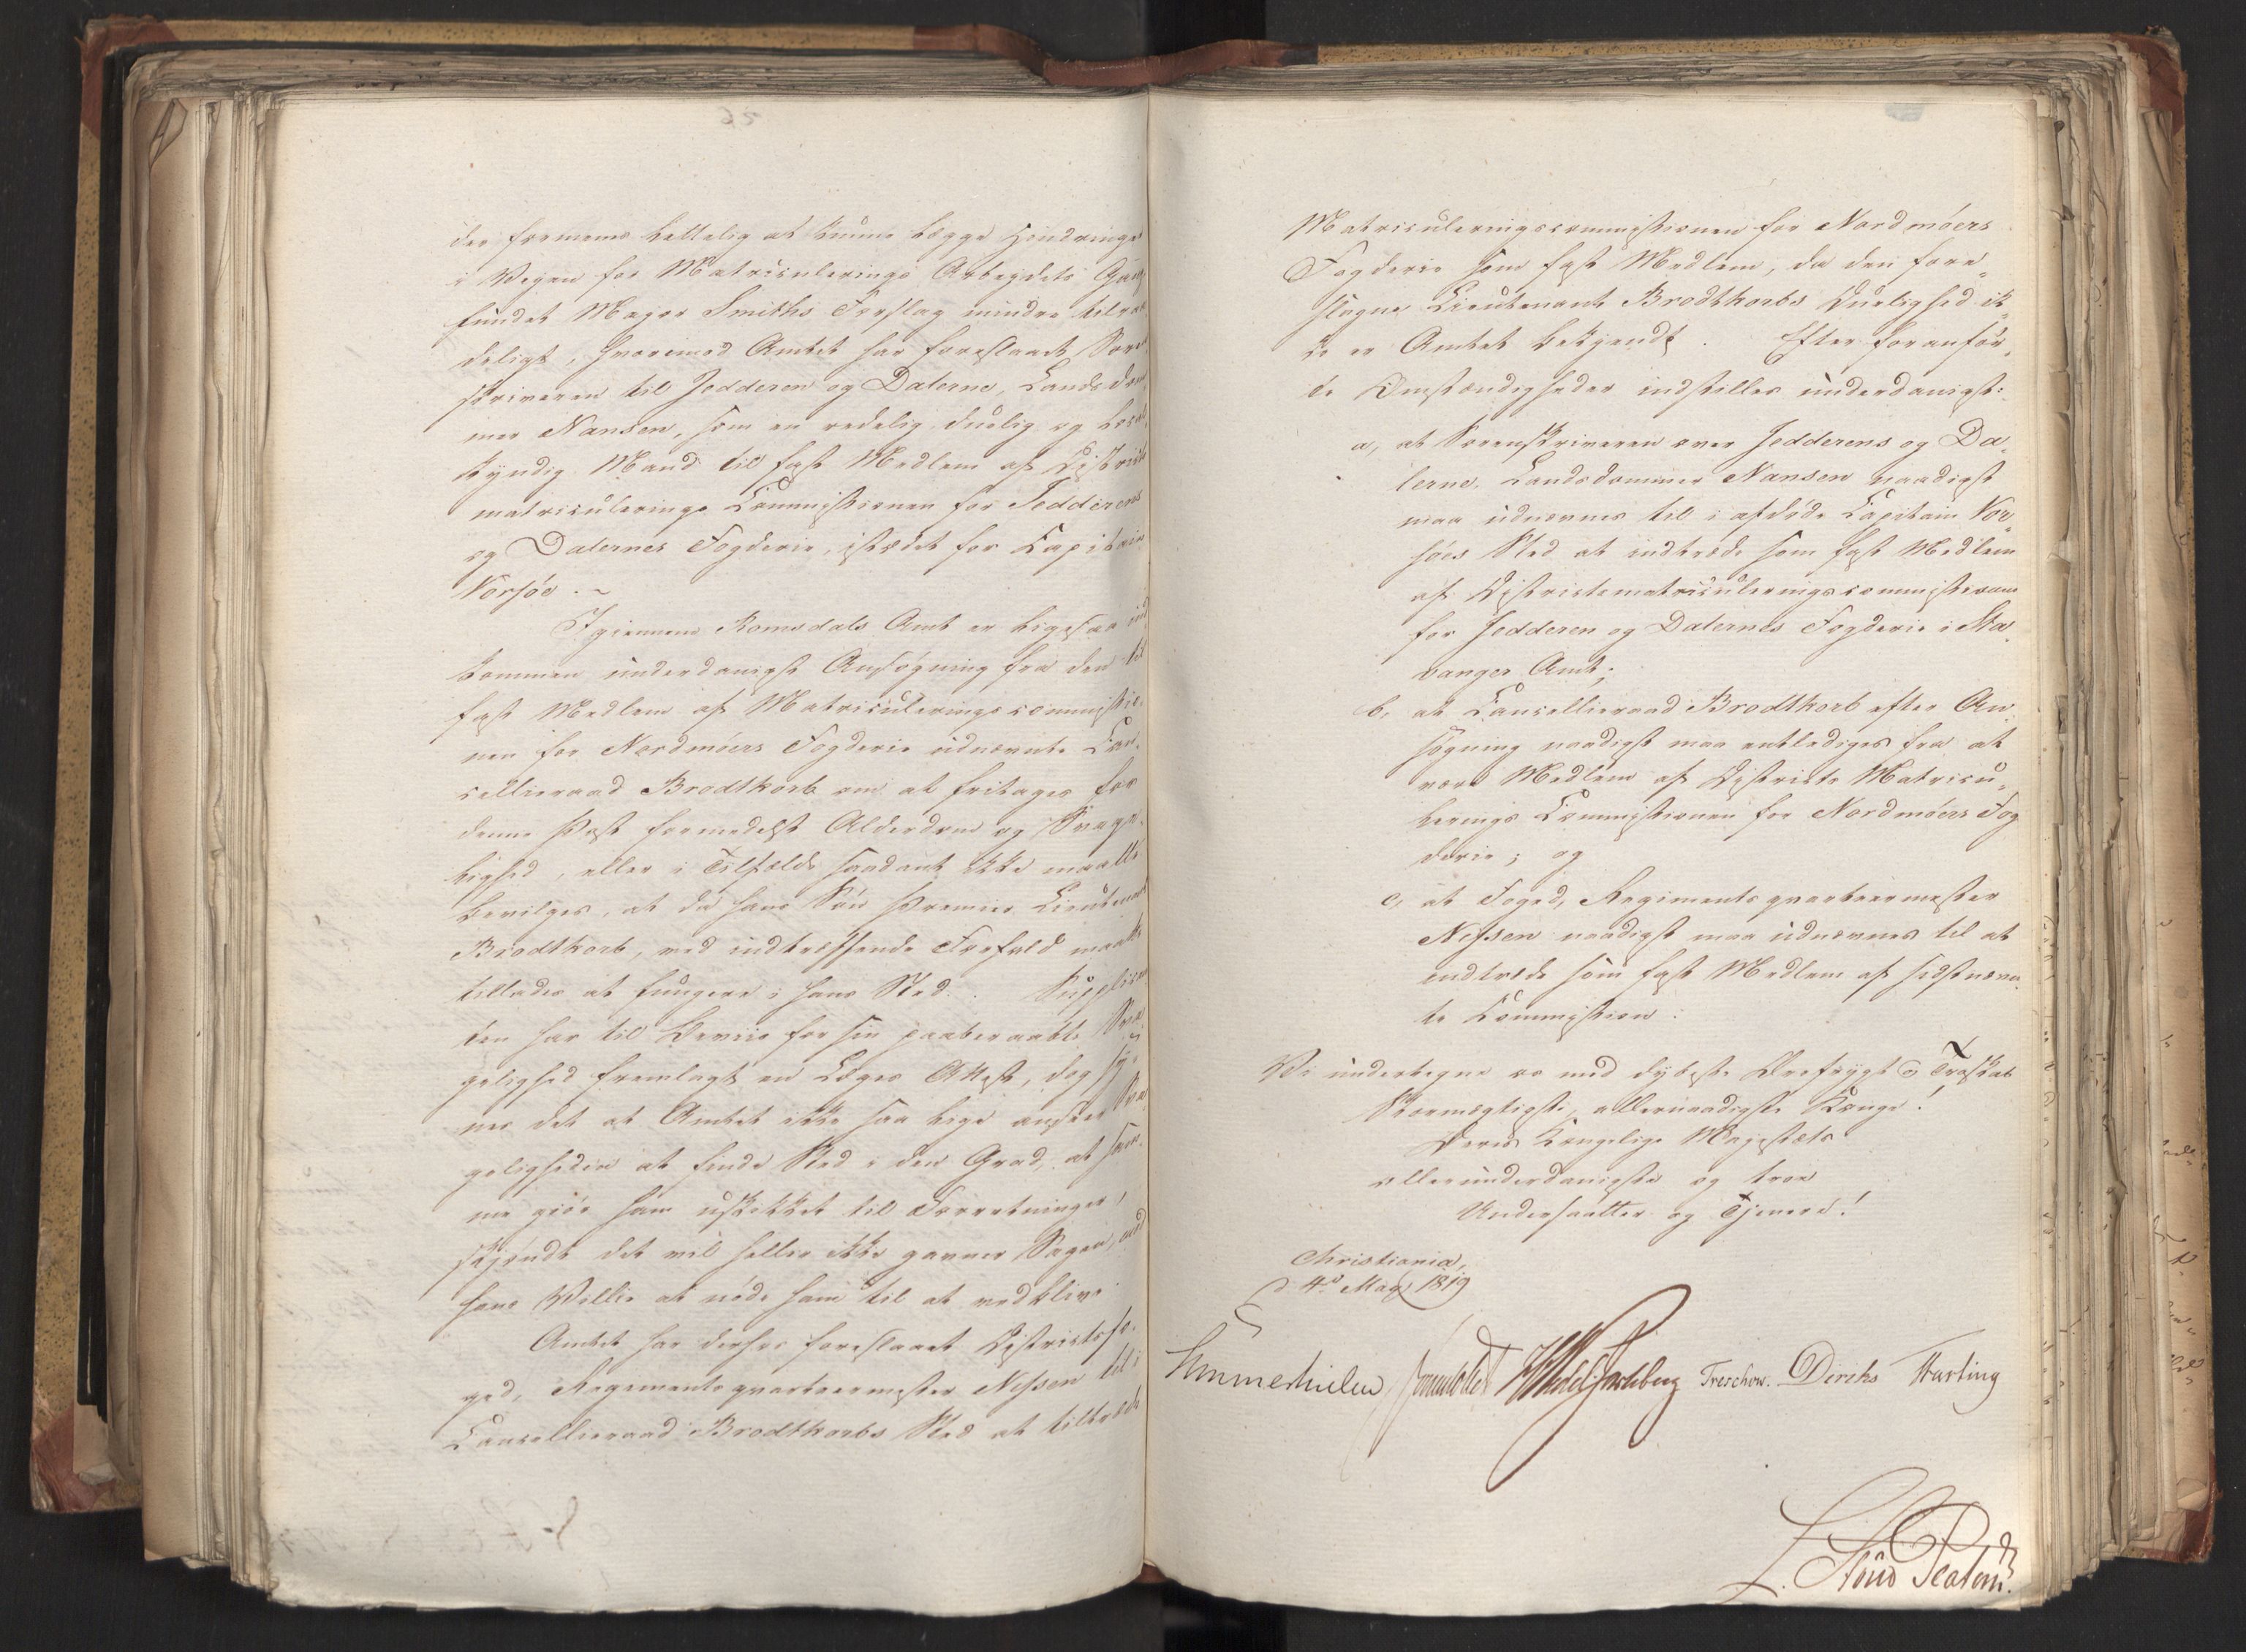 der formeens lettelig at kunne lægge Hindringer
i Vejen for Matriculerings Arbeydets Gang
fundet Major Smiths Forslag mindre tilraa-
deligt, hvorimod Amtet har foreslaaet Soren-
skriveren til Jedderen og Dalerne, Landsdom-
mer Nansen, som en redelig duelig og local-
kyndig Mand til fast Medlem af Districts
matriculerings Commissionen for Jedderens
og Dalernes Fogderie, istædet for Capitain
Norsöe. ~
Igiennem Romsdals Amt er ligesaa ind
kommen underdanigst Ansøgning fra den til
fast Medlem af Matriculeringscommissio-
nen for Nordmöers Fogderie udnævnte Can-
cellieraad Brodtkorb om at fritages for
denne Post formedelst Alderdom og Svage-
lighed, eller i Tilfælde saadant ikke maatte
bevilges, at da hans Sön Premier Lieutenant
Brodtkorb, ved indtræffende Forfald maatte
tillades at fungere i hans Sted. Supplican
ten har til Beviis for sin paaberaabte Sva
gelighed fremlagt en Læges Attest, dog sy-
nes det at Amtet ikke saa lige anseer Sva
geligheden at finde Sted i den Grad, at sam-
me giör ham uskikket til Forretningen,
skjöndt det vil heller ikke gavne Sagen, mod
hans Villie at nöde ham til at vedblive
Amtet har derhos foreslaaet Districtsfo-
ged, Regimentsqvarteermester Nissen til i
Cancellieraad Brodtkorbs Sted at tiltræde
Matriculeringscommissionen for Nordmöers
Fogderie som fast Medlem, da den fore-
slagne Lieutenant Brodtkorbs Duelighed ik-
ke er Amtet bekjendt. Efter foranför-
te Omstændigheder indstilles underdanigst:
a, at Sorenskriveren over Jedderens og Da-
lerne, Landsdommer Nansen naadigst
maa udnævnes til i afdöde Capitain Nor-
söes Sted at indtræde som fast Medlem
af Districtsmatriculeringscommissionen
for Jedderen og Dalernes Fogderie i Sta-
vanger Amt;
b, at Cancellieraad Brodtkorb efter An-
søgning naadigst maa entlediges fra at
være Medlem af Districts Matricu-
lerings Commissionen for Nordmöers Fog
derie; og
c, at Foged, Regimentsqvarteermester
Nissen naadigst maa udnævnes til at
indtræde som fast Medlem af sidstnævn-
te Commission.
Vi undertegne os med dybeste Ærefrygt og Troskab
Stormægtigste, allernaadigste Konge!
Deres Kongelige Majestæts
allerunderdanigste og troe
Undersaatter og Tjenere!
Christiania,
d. 4de May 1819
Sommerhielm HWedelJarlsberg Treschow. Diriks Fasting
L. Stoud Platou